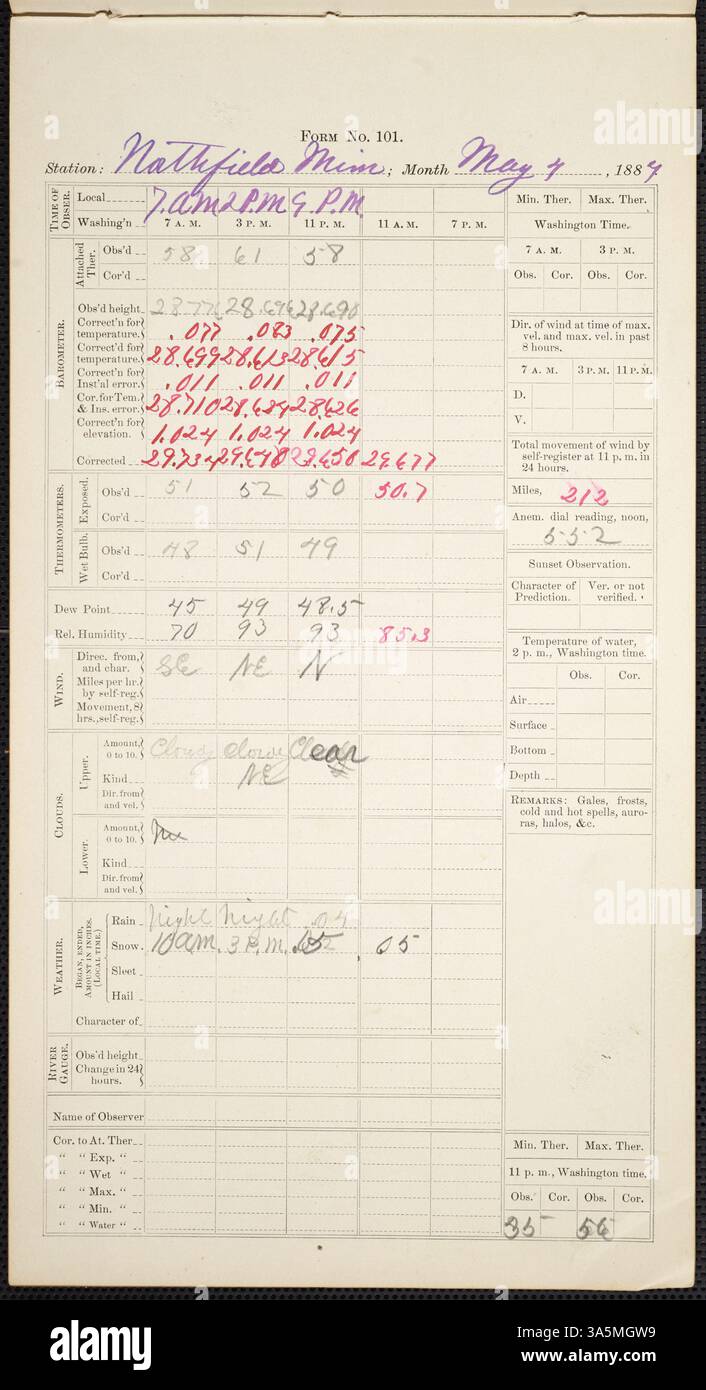 FORM No. 101.
Station: Nothfield Minn; Month May 4, 1884
TIME OF OBSER. Local 7. a M 2 P.M 9. P. M.
Washing'n 7 A. M. 3 P. M. 11 P. M. 11 A. M. 7 P. M.
BAROMETER.
Attached Ther. Obs'd 58 61 58
Cor'd
Obs'd height 28.696 28.690
Correct'n for temperature. .077 .083 .075
Correct'd for temperature. 28.699 28.613 28.615
Correct'n for Inst'al error. .011 .011 .011
Cor. for Tem. & Ins. error. 28.710 28.624 28.626
Correct'n for elevation. 1.024 1.024 1.024
Corrected 29.734 29.648 29.650 29.677
THERMOMETERS.
Exposed. Obs'd 51 52 50 50.7
Cor'd
Wet Bulb. Obs'd 48 51 49
Cor'd
Dew Point 45 49 48.5
Rel. Humidity 70 93 93 85.3
WIND.
Direc. from, and char. SE NE N
Miles per hr. by self-reg.
Movement, 8 hrs., self-reg.
CLOUDS.
Upper. Amount, 0 to 10. Cloudy Cloudy Clear
Kind NE
Dir. from and vel.
Lower. Amount, 0 to 10.
Kind
Dir. from and vel.
WEATHER.
BEGAN, ENDED, AMOUNT IN INCHES. (LOCAL TIME.)
Rain Night Night .04
Snow. 10 a.m. 3 P.M. .05
Sleet
Hail
Character of
RIVER GAUGE.
Obs'd height
Change in 24 hours.
Name of Observer
Cor. to At. Ther
" " Exp. "
" " Wet "
" " Max. "
" " Min. "
" " Water "
Min. Ther. Max. Ther.
Washington Time.
7 A. M. 3 P. M.
Obs. Cor. Obs. Cor.
Dir. of wind at time of max. vel. and max. vel. in past 8 hours.
7 A. M. 3 P. M. 11 P. M.
D.
V.
Total movement of wind by self-register at 11 p. m. in 24 hours.
Miles, 212
Anem. dial reading, noon,
552
Sunset Observation.
Character of Prediction. Ver. or not verified.
Temperature of water, 2 p. m., Washington time.
Obs. Cor.
Air
Surface
Bottom
Depth
REMARKS: Gales, frosts, cold and hot spells, auroras, halos, &c.
Min. Ther. Max. Ther.
11 p. m., Washington time.
Obs. Cor. Obs. Cor.
35 56
alamy
Image ID: 3A5MGW9
www.alamy.com